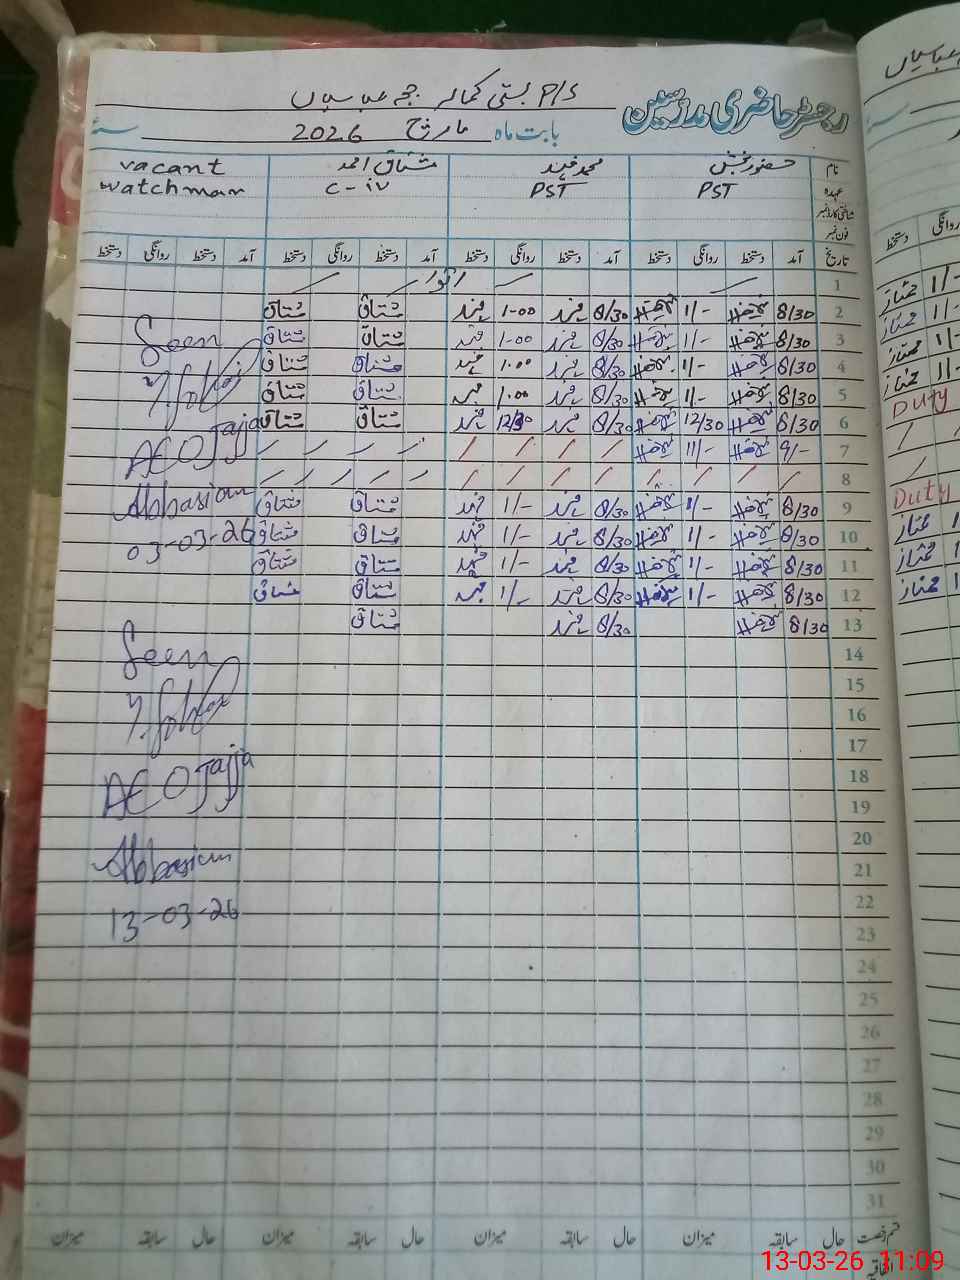 رجسٹر حاضری مدرسین
P/S بستی کمالہ ججہ عباسیاں
بابت ماہ مارچ 2026 سنہ
نام حضور بخش محمد فہد مشتاق احمد vacant
عہدہ PST PST C-iv watchman
شناختی کارڈ نمبر
فون نمبر
تاریخ آمد دستخط روانگی دستخط آمد دستخط روانگی دستخط آمد دستخط روانگی دستخط آمد دستخط روانگی دستخط
1 اتوار
2 8/30 1/- 8/30 فہد 1-00 فہد مشتاق مشتاق
3 8/30 1/- 8/30 فہد 1-00 فہد مشتاق مشتاق
4 8/30 1/- 8/30 فہد 1.00 فہد مشتاق مشتاق
5 8/30 1/- 8/30 فہد 1.00 فہد مشتاق مشتاق
6 8/30 12/30 8/30 فہد 12/30 فہد مشتاق مشتاق
7 9/- 11/-
8
9 8/30 1/- 8/30 فہد 1/- فہد مشتاق مشتاق
10 8/30 1/- 8/30 فہد 1/- فہد مشتاق مشتاق
11 8/30 1/- 8/30 فہد 1/- فہد مشتاق مشتاق
12 8/30 1/- 8/30 فہد 1/- فہد مشتاق مشتاق
13 8/30 8/30 فہد مشتاق
14
15
16
17
18
19
20
21
22
23
24
25
26
27
28
29
30
31
Seen
AEO Jajja
Abbasian
03-03-26
Seen
AEO Jajja
Abbasian
13-03-26
قسم رخصت حال سابقہ میزان حال سابقہ میزان حال سابقہ میزان حال سابقہ میزان
اتفاقیہ
عباسیاں
روانگی دستخط
1/- ممتاز
1/- ممتاز
1/- ممتاز
1/- ممتاز
Duty
Duty
1 ممتاز
1 ممتاز
1 ممتاز
13-03-26 11:09